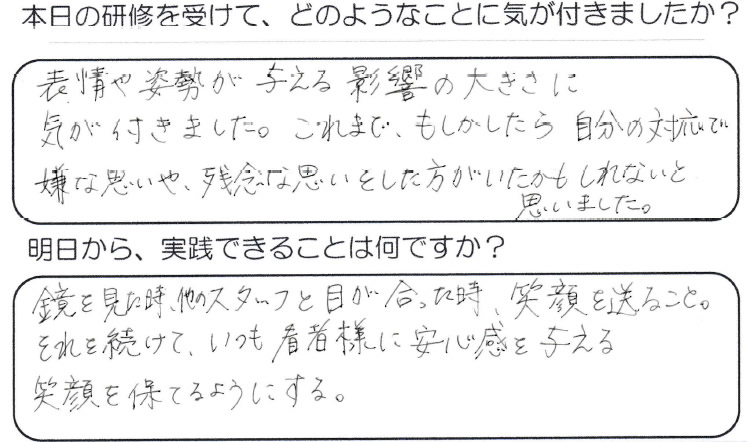 本日の研修を受けて、どのようなことに気が付きましたか？
表情や姿勢が与える影響の大きさに
気が付きました。これまで、もしかしたら自分の対応で
嫌な思いや、残念な思いをした方がいたかもしれないと
思いました。
明日から、実践できることは何ですか？
鏡を見た時、他のスタッフと目が合った時、笑顔を送ること。
それを続けて、いつも患者様に安心感を与える
笑顔を保てるようにする。